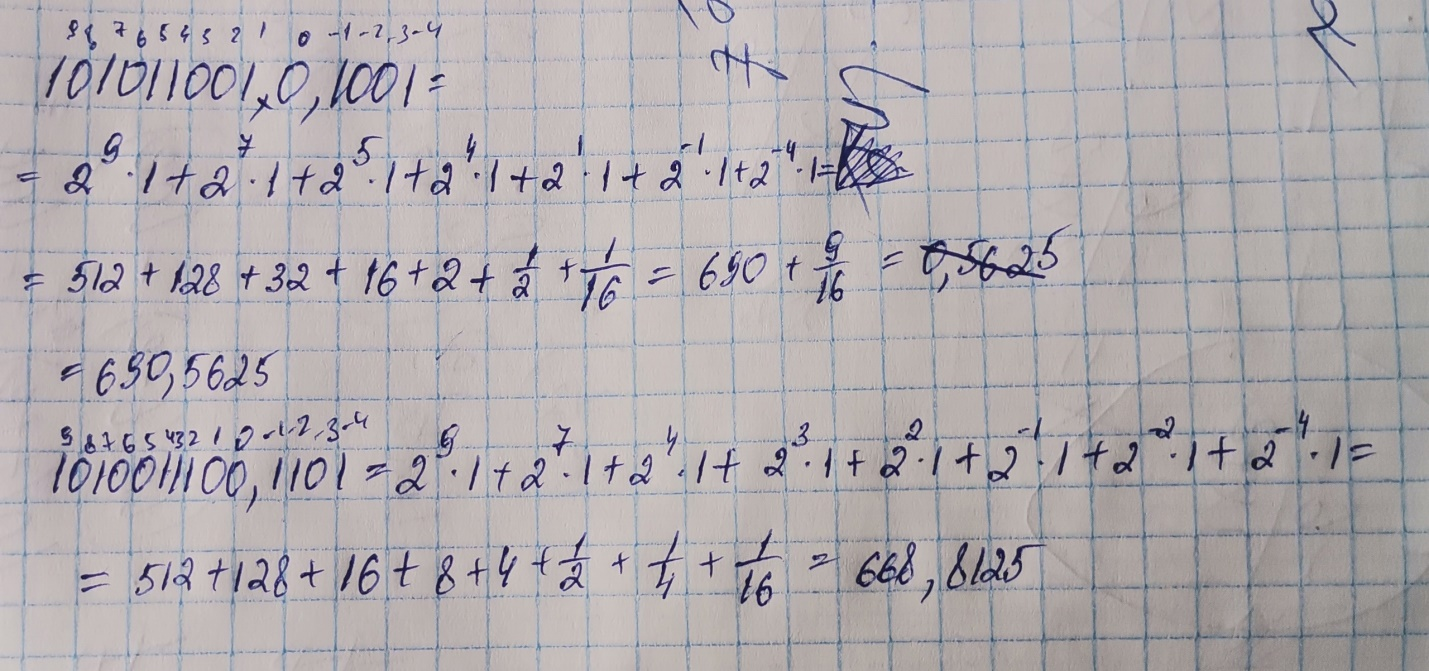 9 8 7 6 5 4 3 2 1 0 -1 -2 -3 -4
1010110010,1001 =
= 2⁹·1 + 2⁷·1 + 2⁵·1 + 2⁴·1 + 2¹·1 + 2⁻¹·1 + 2⁻⁴·1 =
= 512 + 128 + 32 + 16 + 2 + 1/2 + 1/16 = 690 + 9/16 = 0,5625
= 690,5625
9 8 7 6 5 4 3 2 1 0 -1 -2 -3 -4
1010011100,1101 = 2⁹·1 + 2⁷·1 + 2⁴·1 + 2³·1 + 2²·1 + 2⁻¹·1 + 2⁻²·1 + 2⁻⁴·1 =
= 512 + 128 + 16 + 8 + 4 + 1/2 + 1/4 + 1/16 = 668,8125